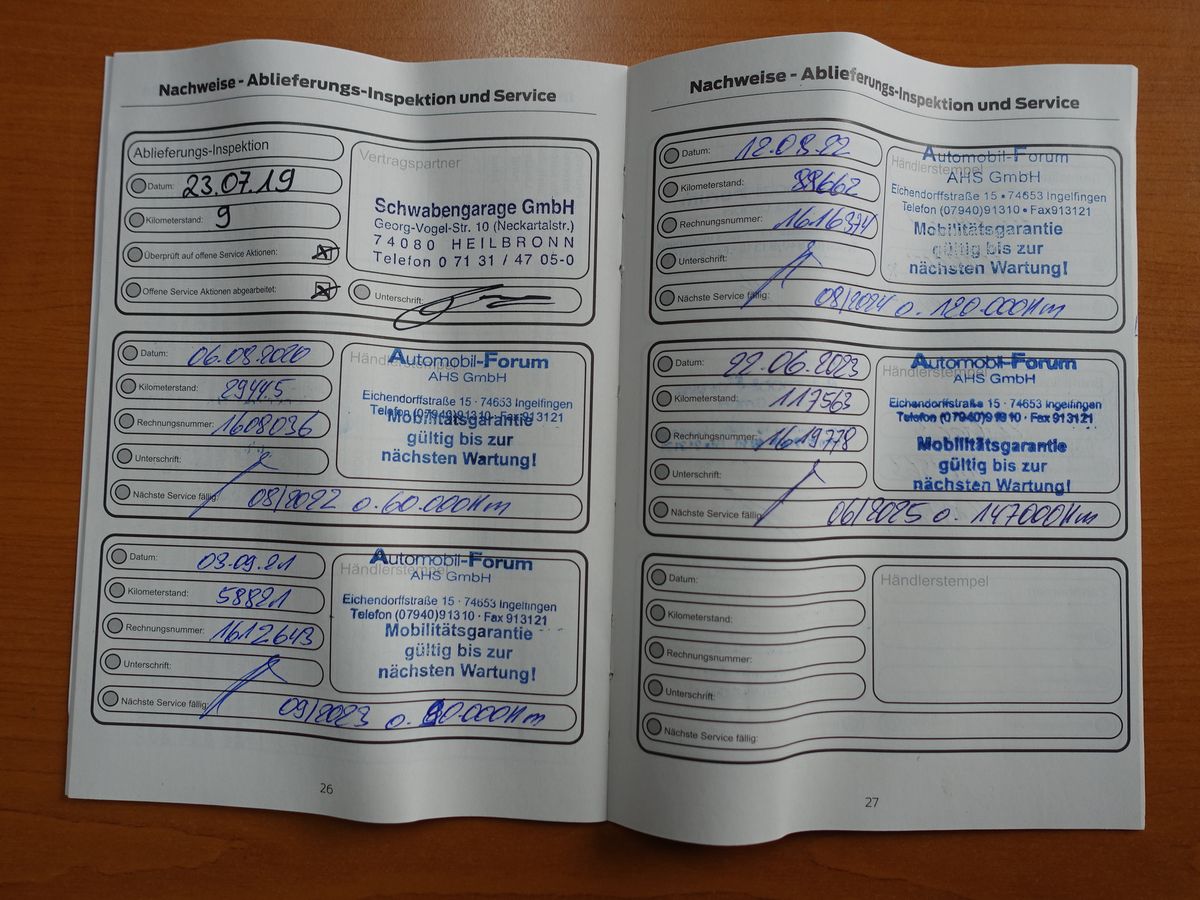 Nachweise - Ablieferungs-Inspektion und Service
Ablieferungs-Inspektion
Datum: 23.07.19
Kilometerstand: 9
Überprüft auf offene Service Aktionen:
Offene Service Aktionen abgearbeitet:
Vertragspartner
Schwabengarage GmbH
Georg-Vogel-Str. 10 (Neckartalstr.)
74080 HEILBRONN
Telefon 0 71 31 / 47 05-0
Unterschrift:
Datum: 06.08.2020
Kilometerstand: 29445
Rechnungsnummer: 1608036
Unterschrift:
Nächste Service fällig: 08/2022 o. 60.000Km
Händlerstempel
Automobil-Forum
AHS GmbH
Eichendorffstraße 15 · 74653 Ingelfingen
Telefon (07940)91310 · Fax 913121
Mobilitätsgarantie
gültig bis zur
nächsten Wartung!
Datum: 03.09.21
Kilometerstand: 58821
Rechnungsnummer: 1612643
Unterschrift:
Nächste Service fällig: 09/2023 o. 90.000Km
Händlerstempel
Automobil-Forum
AHS GmbH
Eichendorffstraße 15 · 74653 Ingelfingen
Telefon (07940)91310 · Fax 913121
Mobilitätsgarantie
gültig bis zur
nächsten Wartung!
26
Nachweise - Ablieferungs-Inspektion und Service
Datum: 12.08.22
Kilometerstand: 89662
Rechnungsnummer: 1616374
Unterschrift:
Nächste Service fällig: 08/2024 o. 120.000Km
Händlerstempel
Automobil-Forum
AHS GmbH
Eichendorffstraße 15 • 74653 Ingelfingen
Telefon (07940)91310 • Fax 913121
Mobilitätsgarantie
gültig bis zur
nächsten Wartung!
Datum: 22.06.2023
Kilometerstand: 117563
Rechnungsnummer: 1619778
Unterschrift:
Nächste Service fällig: 06/2025 o. 147000Km
Händlerstempel
Automobil-Forum
AHS GmbH
Eichendorffstraße 15 · 74653 Ingelfingen
Telefon (07940)91310 · Fax 913121
Mobilitätsgarantie
gültig bis zur
nächsten Wartung!
Datum:
Kilometerstand:
Rechnungsnummer:
Unterschrift:
Nächste Service fällig:
Händlerstempel
27